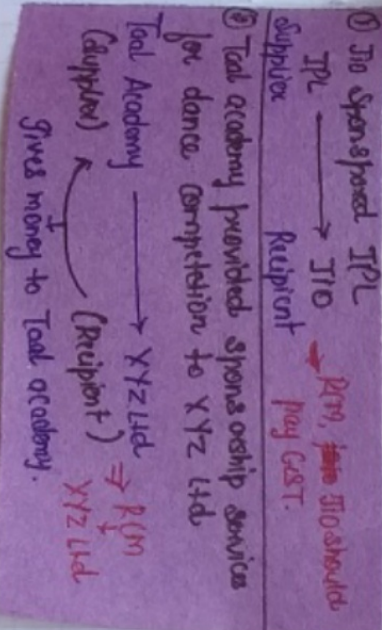 ① Jio Sponspored IPL
IPL → JIO → RCM, JIO should
Supplier Recipient pay GST.
② Taal academy provided sponsorship services
for dance competetion to XYZ Ltd
Taal Academy → XYZ Ltd ⇒ RCM
(Supplier) (Recipient) XYZ Ltd
gives money to Taal academy.